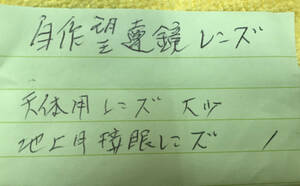 自作望遠鏡レンズ
天体用レンズ 大小
地上用接眼レンズ 1